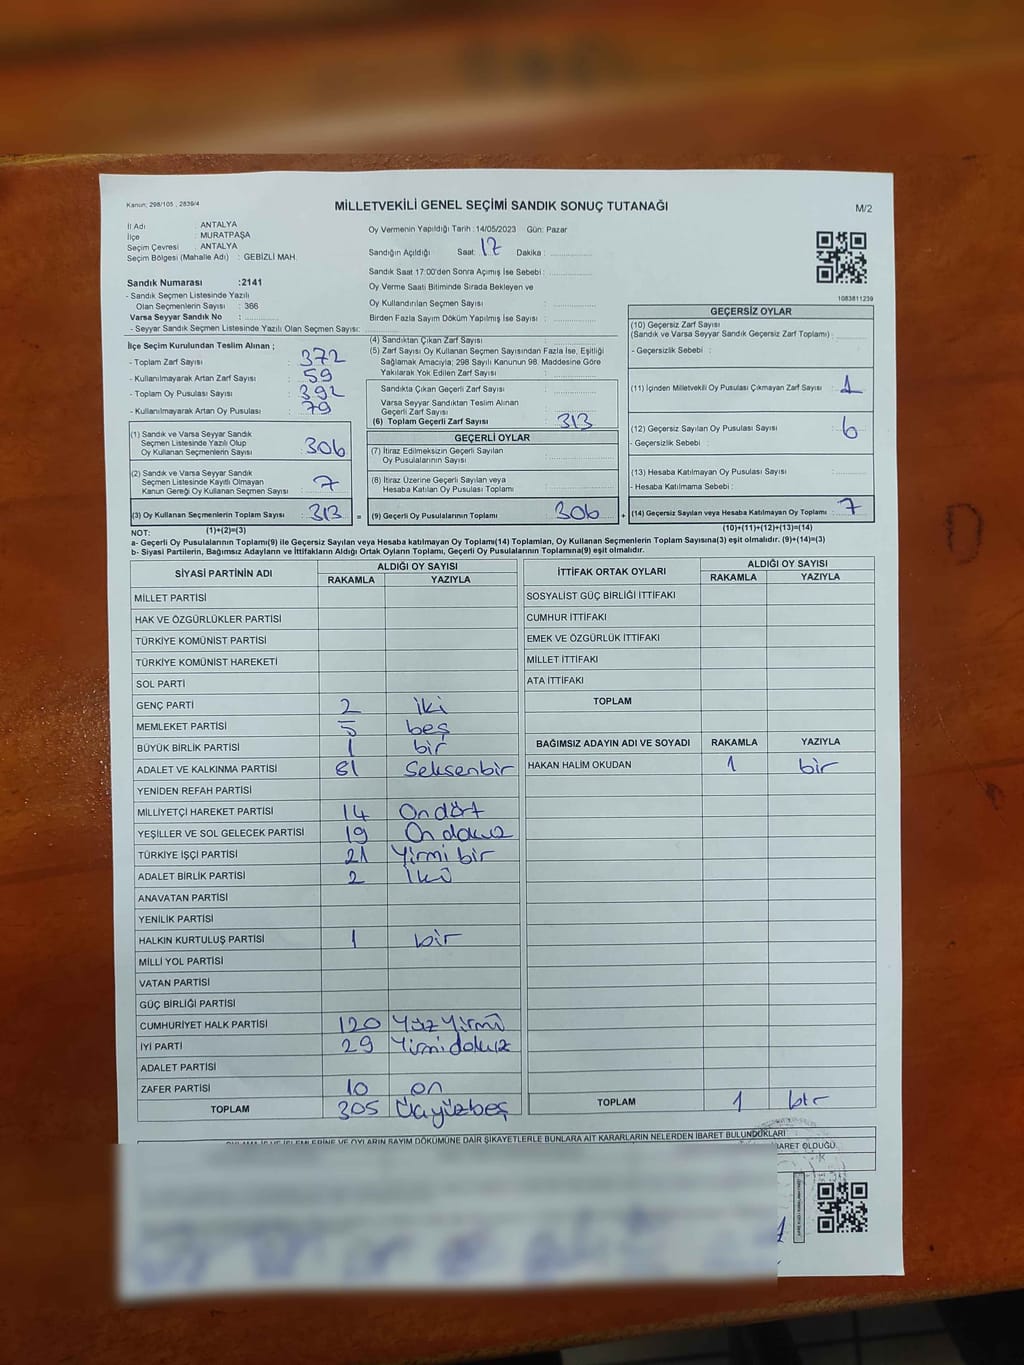 Kanun; 298/105 , 2839/4
MİLLETVEKİLİ GENEL SEÇİMİ SANDIK SONUÇ TUTANAĞI
M/2
İl Adı : ANTALYA
İlçe : MURATPAŞA
Seçim Çevresi : ANTALYA
Seçim Bölgesi (Mahalle Adı) : GEBİZLİ MAH.
Oy Vermenin Yapıldığı Tarih : 14/05/2023 Gün: Pazar
Sandığın Açıldığı Saat: 17 Dakika :
Sandık Saat 17:00'den Sonra Açımış İse Sebebi :
Oy Verme Saati Bitiminde Sırada Bekleyen ve
Oy Kullandırılan Seçmen Sayısı :
Birden Fazla Sayım Döküm Yapılmış İse Sayısı :
1083811239
Sandık Numarası :2141
- Sandık Seçmen Listesinde Yazılı
Olan Seçmenlerin Sayısı : 366
Varsa Seyyar Sandık No :
- Seyyar Sandık Seçmen Listesinde Yazılı Olan Seçmen Sayısı:
İlçe Seçim Kurulundan Teslim Alınan ;
- Toplam Zarf Sayısı : 372
- Kullanılmayarak Artan Zarf Sayısı : 59
- Toplam Oy Pusulası Sayısı : 392
- Kullanılmayarak Artan Oy Pusulası : 79
(1) Sandık ve Varsa Seyyar Sandık
Seçmen Listesinde Yazılı Olup
Oy Kullanan Seçmenlerin Sayısı : 306
(2) Sandık ve Varsa Seyyar Sandık
Seçmen Listesinde Kayıtlı Olmayan
Kanun Gereği Oy Kullanan Seçmen Sayısı : 7
(3) Oy Kullanan Seçmenlerin Toplam Sayısı : 313
(1)+(2)=(3)
(4) Sandıktan Çıkan Zarf Sayısı :
(5) Zarf Sayısı Oy Kullanan Seçmen Sayısından Fazla İse, Eşitliği
Sağlamak Amacıyla; 298 Sayılı Kanunun 98. Maddesine Göre
Yakılarak Yok Edilen Zarf Sayısı :
Sandıkta Çıkan Geçerli Zarf Sayısı :
Varsa Seyyar Sandıktan Teslim Alınan
Geçerli Zarf Sayısı :
(6) Toplam Geçerli Zarf Sayısı : 313
GEÇERLİ OYLAR
(7) İtiraz Edilmeksizin Geçerli Sayılan
Oy Pusulalarının Sayısı :
(8) İtiraz Üzerine Geçerli Sayılan veya
Hesaba Katılan Oy Pusulası Toplamı :
= (9) Geçerli Oy Pusulalarının Toplamı : 306
GEÇERSİZ OYLAR
(10) Geçersiz Zarf Sayısı
(Sandık ve Varsa Seyyar Sandık Geçersiz Zarf Toplamı) :
- Geçersizlik Sebebi :
(11) İçinden Milletvekili Oy Pusulası Çıkmayan Zarf Sayısı : 1
(12) Geçersiz Sayılan Oy Pusulası Sayısı : 6
- Geçersizlik Sebebi :
(13) Hesaba Katılmayan Oy Pusulası Sayısı :
- Hesaba Katılmama Sebebi :
+ (14) Geçersiz Sayılan veya Hesaba Katılmayan Oy Toplamı : 7
(10)+(11)+(12)+(13)=(14)
NOT:
a- Geçerli Oy Pusulalarının Toplamı(9) ile Geçersiz Sayılan veya Hesaba katılmayan Oy Toplamı(14) Toplamları, Oy Kullanan Seçmenlerin Toplam Sayısına(3) eşit olmalıdır. (9)+(14)=(3)
b- Siyasi Partilerin, Bağımsız Adayların ve İttifakların Aldığı Ortak Oyların Toplamı, Geçerli Oy Pusulalarının Toplamına(9) eşit olmalıdır.
SİYASİ PARTİNİN ADI ALDIĞI OY SAYISI
RAKAMLA YAZIYLA
MİLLET PARTİSİ
HAK VE ÖZGÜRLÜKLER PARTİSİ
TÜRKİYE KOMÜNİST PARTİSİ
TÜRKİYE KOMÜNİST HAREKETİ
SOL PARTİ
GENÇ PARTİ 2 iki
MEMLEKET PARTİSİ 5 beş
BÜYÜK BİRLİK PARTİSİ 1 bir
ADALET VE KALKINMA PARTİSİ 81 Seksenbir
YENİDEN REFAH PARTİSİ
MİLLİYETÇİ HAREKET PARTİSİ 14 On dört
YEŞİLLER VE SOL GELECEK PARTİSİ 19 On dokuz
TÜRKİYE İŞÇİ PARTİSİ 21 Yirmi bir
ADALET BİRLİK PARTİSİ 2 İki
ANAVATAN PARTİSİ
YENİLİK PARTİSİ
HALKIN KURTULUŞ PARTİSİ 1 bir
MİLLİ YOL PARTİSİ
VATAN PARTİSİ
GÜÇ BİRLİĞİ PARTİSİ
CUMHURİYET HALK PARTİSİ 120 Yüz Yirmi
İYİ PARTİ 29 Yirmidokuz
ADALET PARTİSİ
ZAFER PARTİSİ 10 on
TOPLAM 305 Üçyüzbeş
İTTİFAK ORTAK OYLARI ALDIĞI OY SAYISI
RAKAMLA YAZIYLA
SOSYALİST GÜÇ BİRLİĞİ İTTİFAKI
CUMHUR İTTİFAKI
EMEK VE ÖZGÜRLÜK İTTİFAKI
MİLLET İTTİFAKI
ATA İTTİFAKI
TOPLAM
BAĞIMSIZ ADAYIN ADI VE SOYADI RAKAMLA YAZIYLA
HAKAN HALİM OKUDAN 1 bir
TOPLAM 1 bir
OYLARIN SAYIM DÖKÜMÜNE DAİR ŞİKAYETLERLE BUNLARA AİT KARARLARIN NELERDEN İBARET BULUNDUKLARI
İBARET OLDUĞU